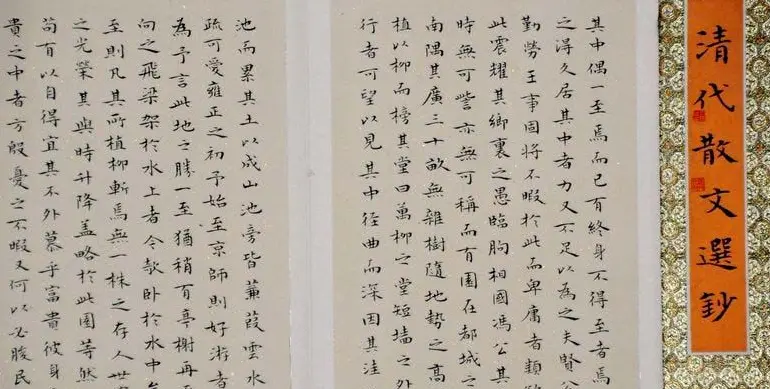 清代散文選鈔
其中偶一至焉而已有終身不得至者焉
之得久居其中者力又不足以為之夫賢公
勤勞王事固將不暇於此而卑庸者類欲
此震耀其鄉裏之愚臨朐相國馮公其
時無可訾亦無可稱而有園在都城之
南隅其廣三十畝無雜樹隨地勢之高
植以柳而榜其堂曰萬柳之堂短墻之外
行者可望以見其中徑曲而深因其洼
池而累其土以成山池旁皆蒹葭雲水
疏可愛雍正之初予始至京師則好游者
為予言此地之勝一至猶稍有亭榭再至
向之飛梁架於水上者今欹卧於水中
至則凡其所植柳斬焉無一株之存人世
之光榮其與時升降蓋略於此園等然
苟有以自得宜其不外慕乎富貴彼身
貴之中者方殷憂之不暇又何以必朘民